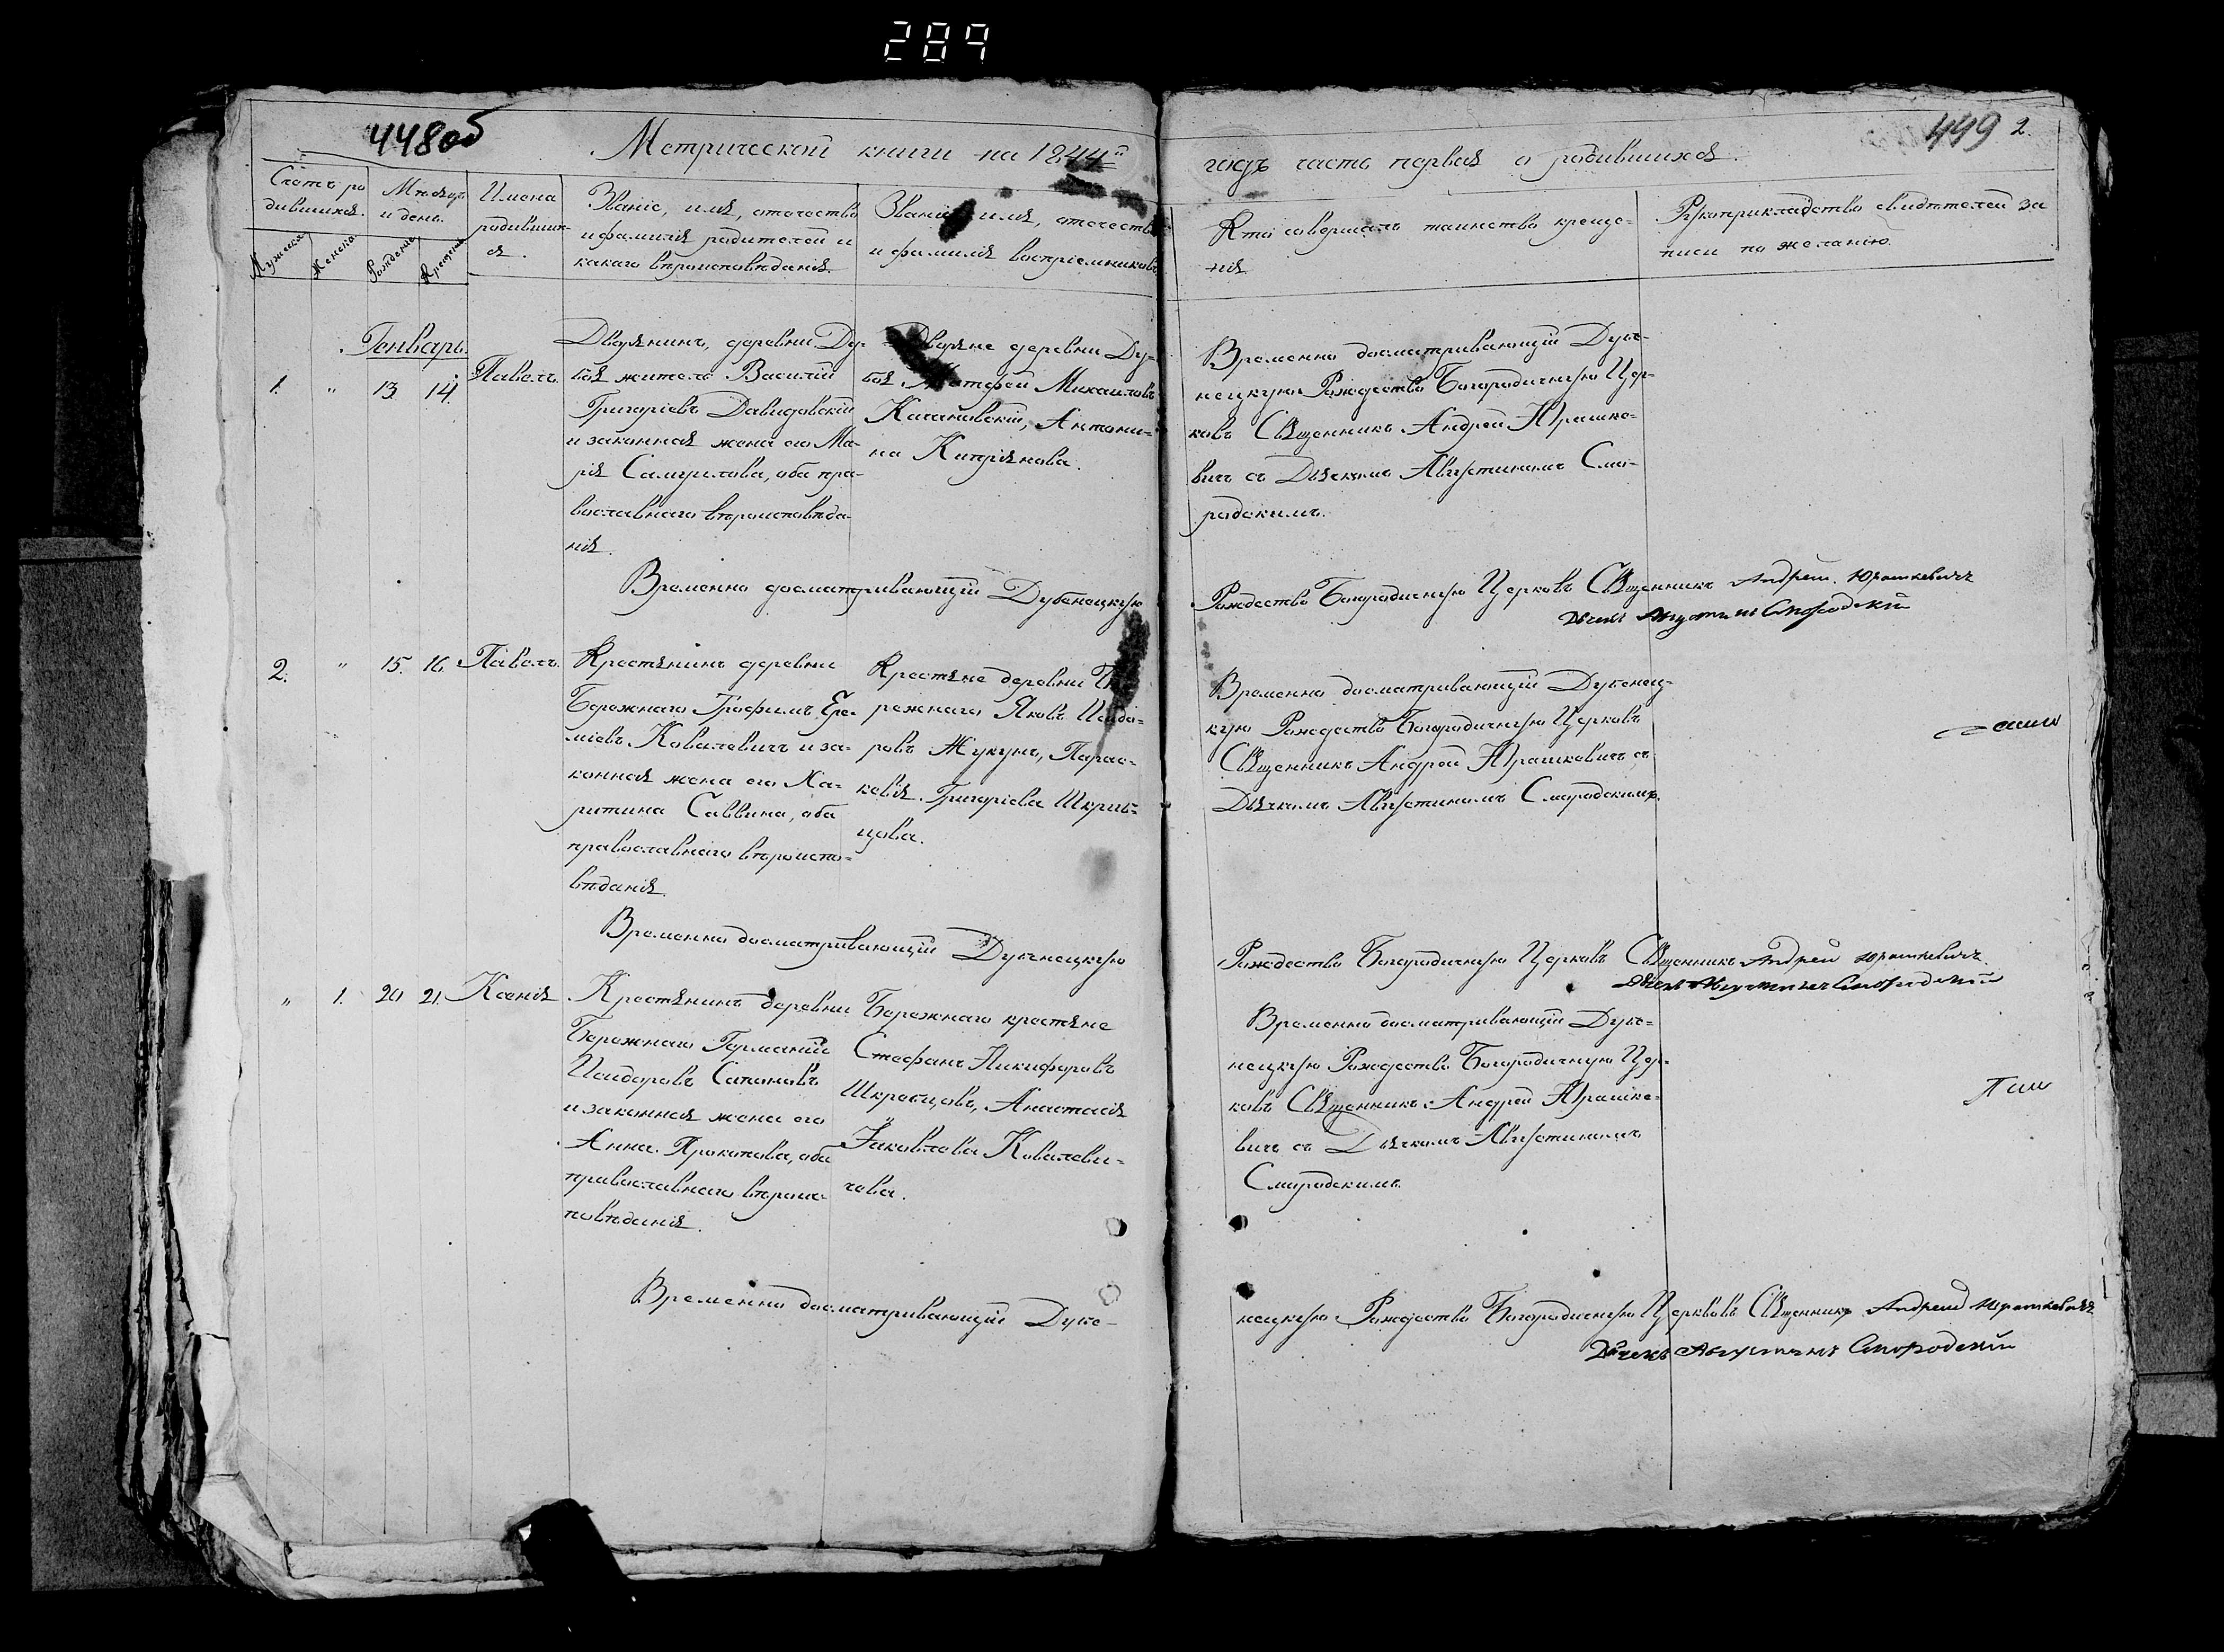 289
448об
449 2.
Метрической книги на 1844й
годъ часть первая о родившихся.
Счетъ ро
дившихся.
Мужеска
Женска
Мѣсяцъ
и день.
Рожденія
Крещенія
Имена
родивших
ся.
Званіе, имя, отечество
и фамилія родителей и
какаго вѣроисповѣданія.
Званіе, имя, отечество
и фамилія воспріемниковъ
Кто совершалъ таинство креще-
нія.
Рукоприкладство свидѣтелей за
писи по желанію.
Генварь.
1. " 13. 14. Павелъ.
Дворянинъ, деревни Ду-
боя житель Василій
Григоріевъ Давидовскій
и законная жена его Ма-
рія Самуилова, оба пра-
вославнаго вѣроисповѣда-
нія.
Дворяне деревни Ду-
боя Матфей Михаиловъ
Качановскій, Антони-
на Кипріянова.
Временно досматривающій Дубе-
нецкую Рождество Богородичную Цер-
ковь Священникъ Андрей Юрашке-
вичъ съ Дьячкомъ Августиномъ Смо-
родскимъ.
Временно досматривающій Дубенецкую
Рождество Богородичную Церковь Священникъ Андрей Юрашкевичъ
Дьячекъ Августинъ Смородскій
2. " 15. 16. Павелъ.
Крестянинъ деревни
Бережнаго Трофимъ Ере-
міевъ Ковалевичъ и за-
конная жена его Ха-
ритина Саввина, оба
православнаго вѣроиспо-
вѣданія.
Крестяне деревни Бе
режнаго Яковъ Исидо-
ровъ Жукунъ, Парас-
кевія Григоріева Шкриб-
цова.
Временно досматривающій Дубенец-
кую Рождество Богородичную Церковь
Священникъ Андрей Юрашкевичъ съ
Дьячкомъ Августиномъ Смородскимъ.
Временно досматривающій Дубенецкую
Рождество Богородичную Церковь Священникъ Андрей Юрашкевичъ
Дьячекъ Августинъ Смородскій
" 1. 20. 21. Ксенія
Крестянинъ деревни
Бережнаго Германій
Исидоровъ Сатоновъ
и законная жена его
Анна Прокопова, оба
православнаго вѣроис-
повѣданія.
Бережнаго крестяне
Стефанъ Никифоровъ
Шкробцовъ, Анастасія
Яковлева Ковалеви-
чова.
Временно досматривающій Дубе-
нецкую Рождество Богородичную Цер-
ковь Священникъ Андрей Юрашке-
вичъ съ Дьячкомъ Августиномъ
Смородскимъ.
Временно досматривающій Дубе-
нецкую Рождество Богородичную Церковь Священникъ Андрей Юрашкевичъ
Дьячекъ Августинъ Смородскій